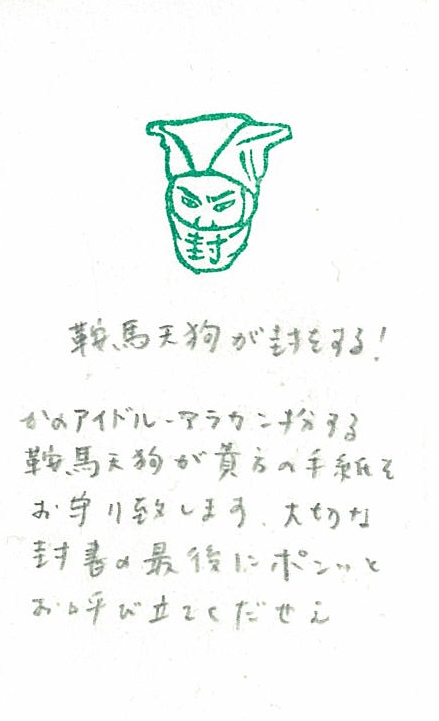 封
鞍馬天狗が封をする!
かのアイドル-アラカン扮する
鞍馬天狗が貴方の手紙を
お守り致します、大切な
封書の最後にポンッと
お呼び立てくだせえ